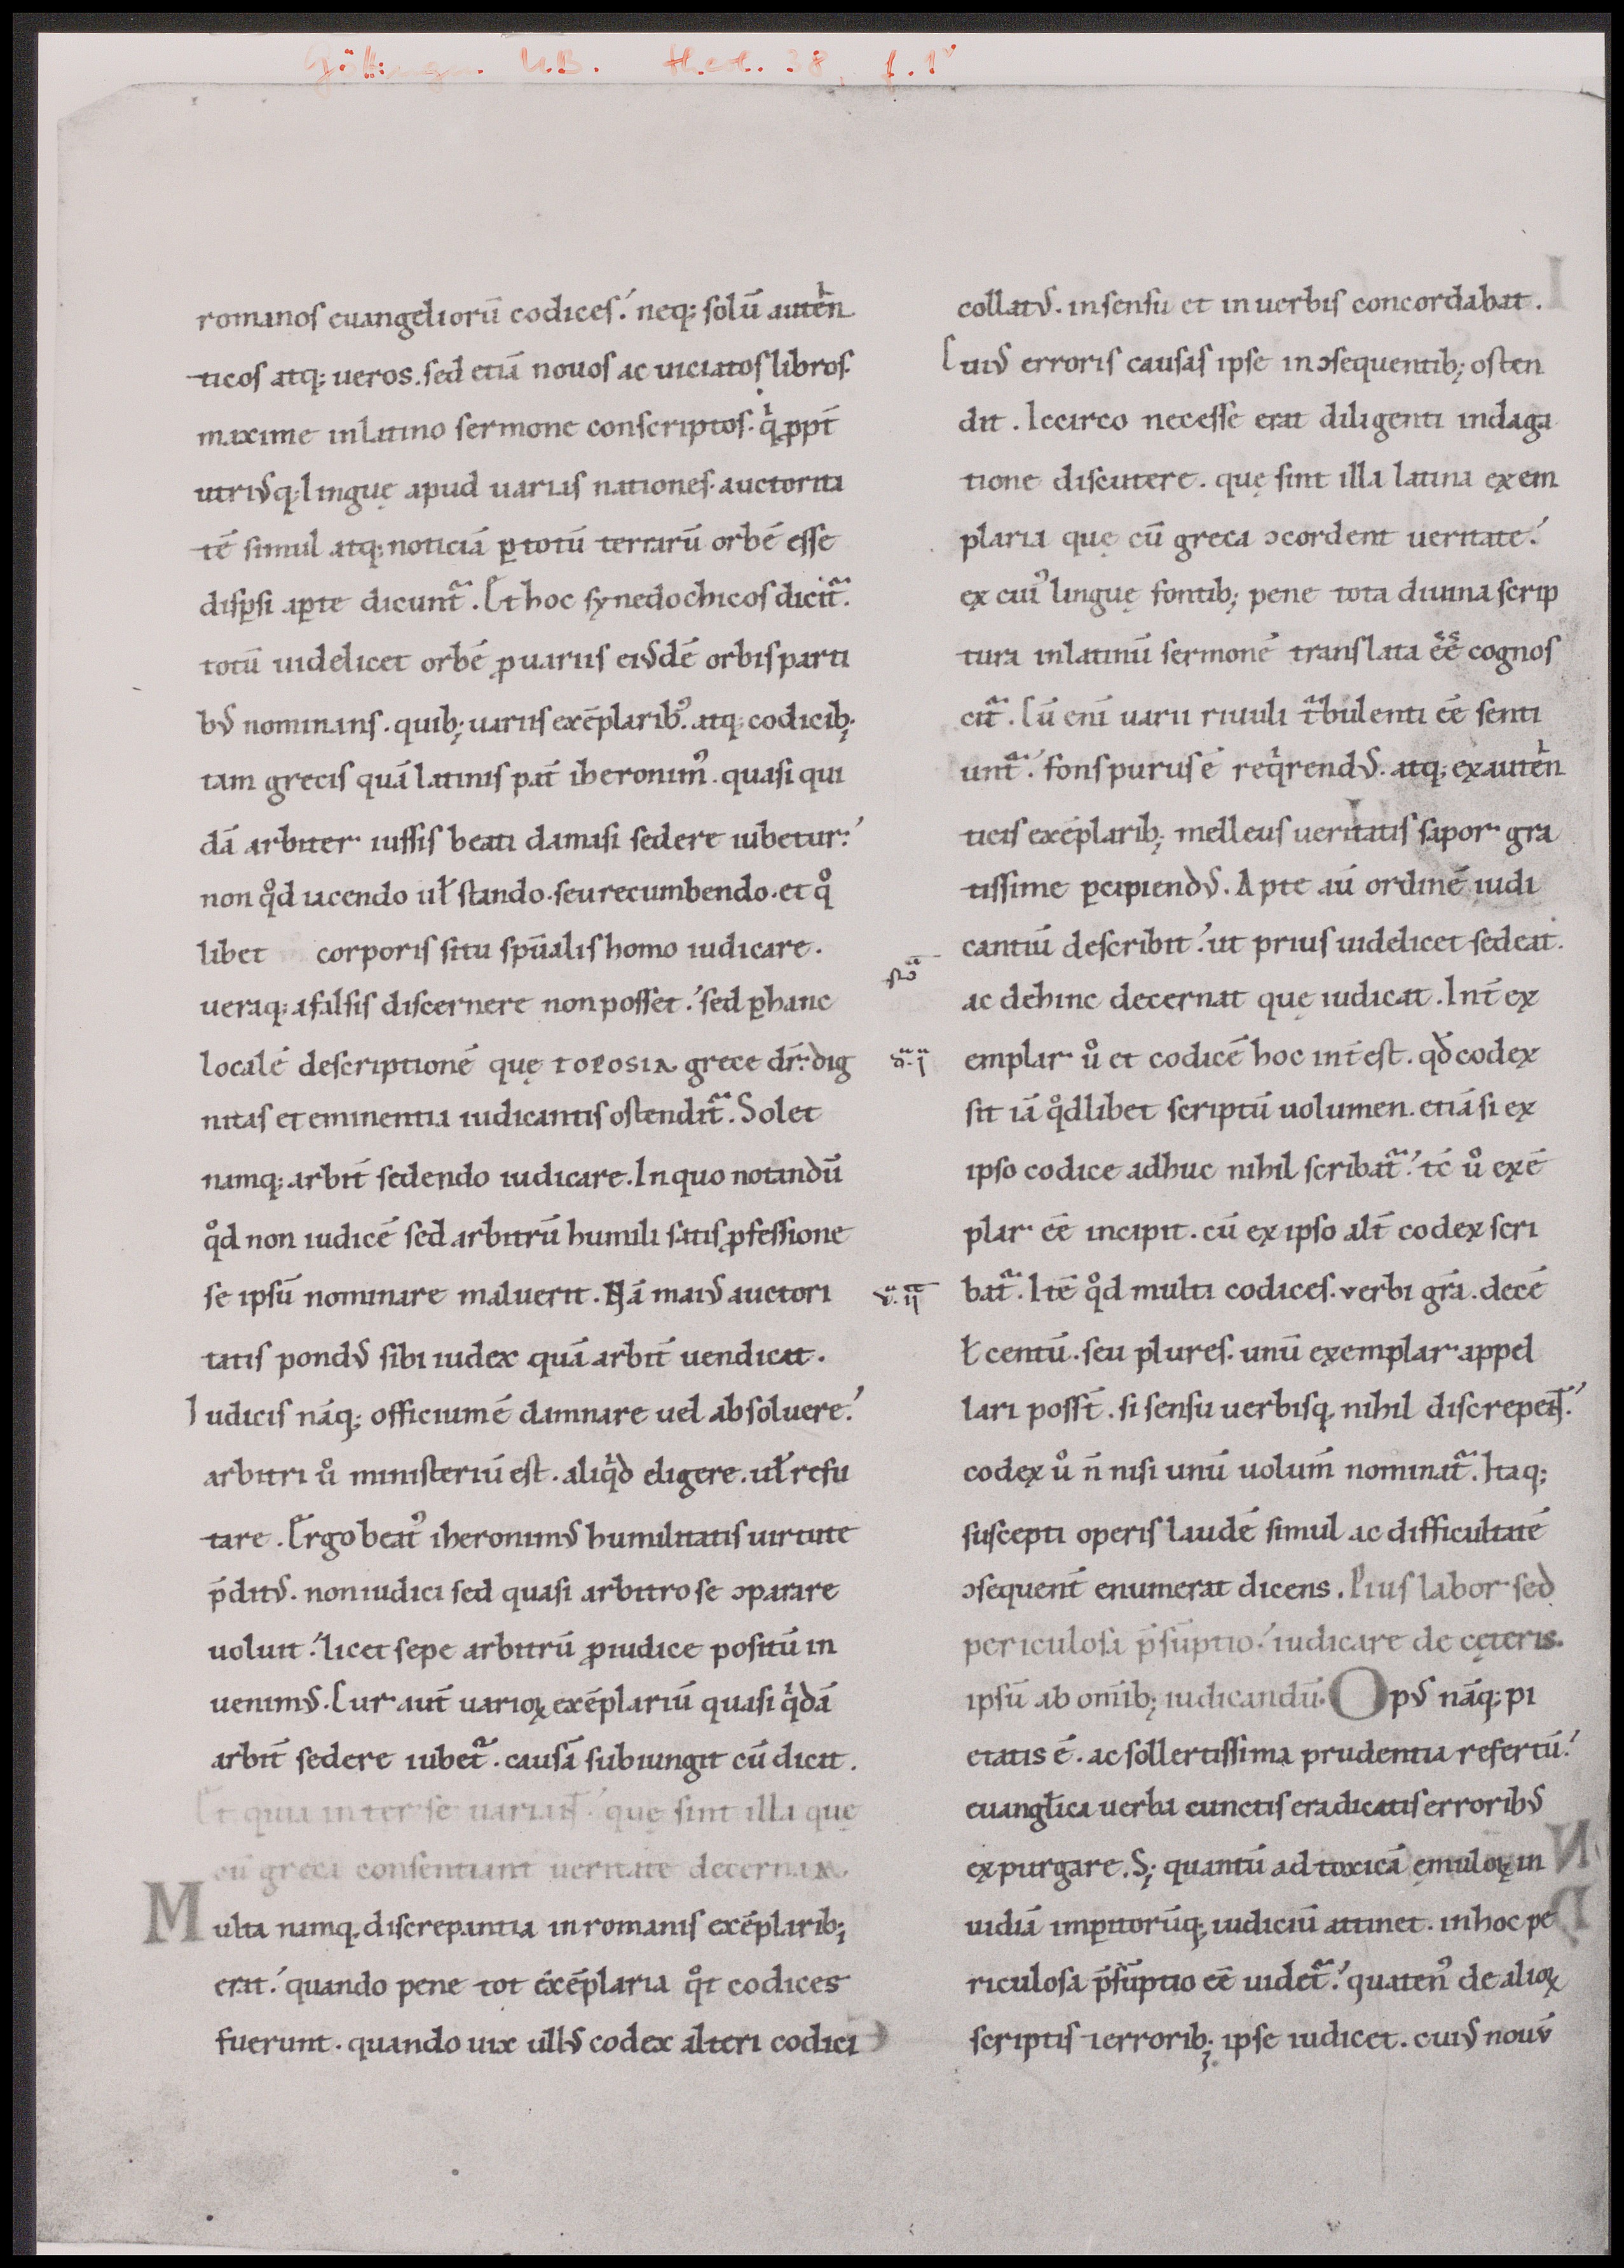 Göttingen U.B. theol. 38, f. 1v
romanos euangeliorū codices. neq; solū autēn
ticos atq; ueros. sed etiā nouos ac uiciatos libros.
maxime in latino sermone conscriptos. q̇ ꝓpt̄
utriꝰq; linguę apud uarias nationes. auctorita
tē simul atq; noticiā ꝑ totū terrarū orbē esse
disꝑsi aꝑte dicunt᷑. Et hoc synedochicos dicit᷑.
totū uidelicet orbē ꝓ uariis eiꝰdē orbis parti
bꝰ nominans. quib; uariis exēplaribꝰ. atq; codicib;
tam grecis quā latinis pat̄ iheronimꝰ. quasi qui
dā arbiter iussis beati damasi sedere iubetur.
non qͦd iacendo uł stando. seu recumbendo. et qͦ
libet corporis situ spūalis homo iudicare.
ueraq; a falsis discernere non posset. sed ꝑ hanc
localē descriptionē quę TOPOSIA grece dr̄. dig
nitas et eminentia iudicantis ostendit᷑. Solet
namq; arbit̄ sedendo iudicare. In quo notandū
qͦd non iudicē sed arbitrū humili satis ꝓfessione
se ipsū nominare maluerit. Nā maiꝰ auctori
tatis pondꝰ sibi iudex quā arbit̄ uendicat.
Iudicis nāq; officium ē damnare uel absoluere.
arbitri uͦ ministeriū est. aliqͥd eligere. uł refu
tare. Ergo beatꝰ iheronimꝰ humilitatis uirtute
p̄ditꝰ. non iudici sed quasi arbitro se ↄparare
uoluit. licet sepe arbitrū ꝓ iudice positū in
uenimꝰ. Cur aut̄ uarioꝝ exēplariū quasi qͥdā
arbit̄ sedere iubet᷑. causā subiungit cū dicit.
Et quia inter se uariant. quę sint illa quę
cū greca consentiant ueritate decernam.
Multa namq; discrepantia in romanis exēplarib;
erat. quando pene tot exēplaria qͦt codices
fuerunt. quando uix ullꝰ codex alteri codici
collatꝰ. in sensu et in uerbis concordabat.
Cuiꝰ erroris causas ipse in ↄsequentib; osten
dit. Iccirco necesse erat diligenti indaga
tione discutere. quę sint illa latina exem
plaria quę cū greca ↄcordent ueritate.
ex cuiꝰ linguę fontib; pene tota diuina scrip
tura in latinū sermonē translata eē cognos
cit᷑. Cū eni uarii riuuli t᷑bulenti eē senti
unt᷑. fons purus ē reqͥrendꝰ. atq; ex autēn
ticis exēplarib; melleus ueritatis sapor gra
tissime ꝑcipiendꝰ. Apte aū ordinē iudi
cantiū describit. ut prius uidelicet sedeat.
ac dehinc decernat quę iudicat. Int̄ ex
emplar uͦ et codicē hoc int̄est. qd̄ codex
sit iā qͦdlibet scriptū uolumen. etiā si ex
ipso codice adhuc nihil scribat᷑. tc̄ uͦ exē
plar eē incipit. cū ex ipso alt̄ codex scri
bat᷑. Itē qͦd multi codices. verbi grā. decē
ł centū. seu plures. unū exemplar appel
lari posst̄. si sensu uerbisq; nihil discrepent.
codex uͦ n̄ nisi unū uolum̄ nominat᷑. Itaq;
suscepti operis laudē simul ac difficultatē
ↄsequent̄ enumerat dicens. Pius labor sed
periculosa p̄sūptio. iudicare de cęteris.
ipsū ab omīb; iudicandū. Opꝰ nāq; pi
etatis ē. ac sollertissima prudentia refertū.
euangłica uerba cunctis eradicatis erroribꝰ
expurgare. S; quantū ad toxicā ęmuloꝝ in
uidiā imꝑitorūq; iudiciū attinet. in hoc pe
riculosa p̄sūptio eē uidet᷑. quatenꝰ de alioꝝ
scriptis ł errorib; ipse iudicet. cuiꝰ nouū